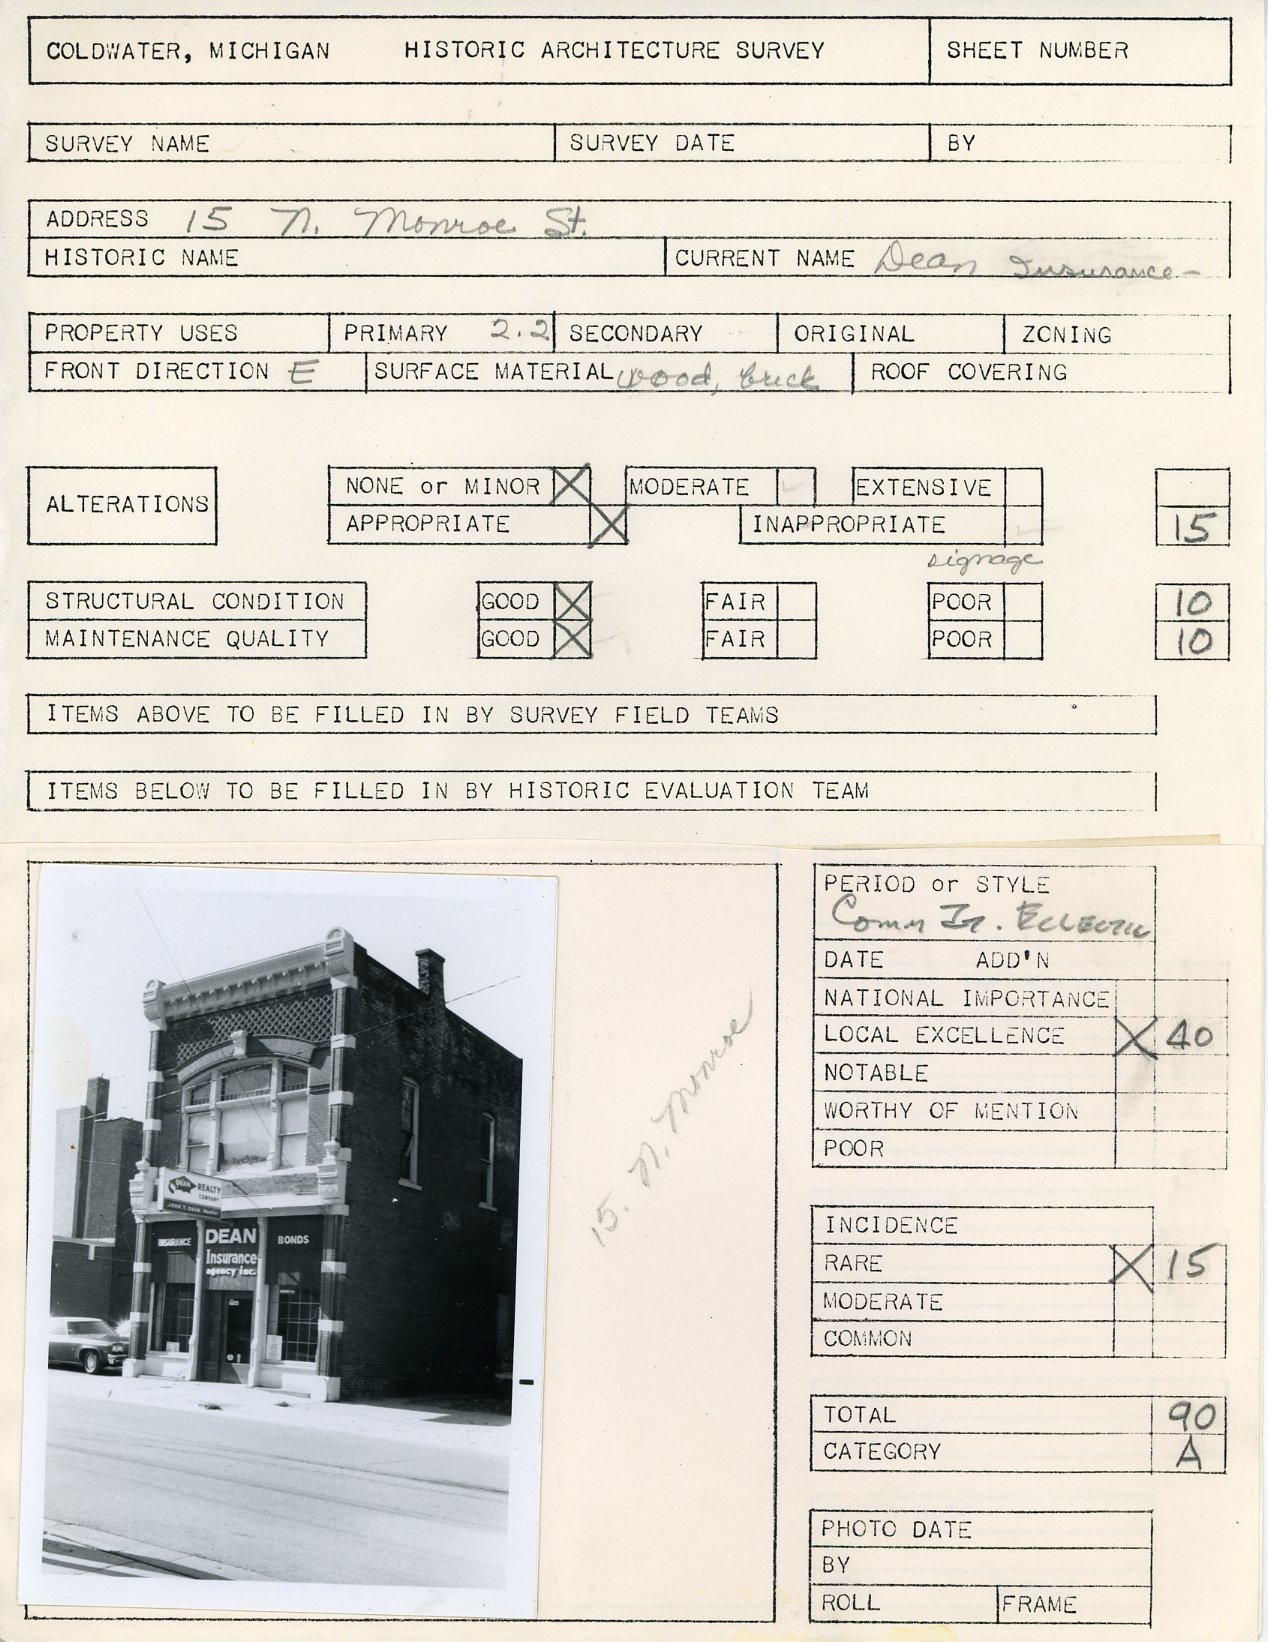 COLDWATER, MICHIGAN HISTORIC ARCHITECTURE SURVEY SHEET NUMBER
SURVEY NAME SURVEY DATE BY
ADDRESS 15 N. Monroe St.
HISTORIC NAME CURRENT NAME Dean Insurance-
PROPERTY USES PRIMARY 2.2 SECONDARY ORIGINAL ZONING
FRONT DIRECTION E SURFACE MATERIAL wood, brick ROOF COVERING
ALTERATIONS NONE or MINOR X MODERATE EXTENSIVE
APPROPRIATE X INAPPROPRIATE 15
signage
STRUCTURAL CONDITION GOOD X FAIR POOR 10
MAINTENANCE QUALITY GOOD X FAIR POOR 10
ITEMS ABOVE TO BE FILLED IN BY SURVEY FIELD TEAMS
ITEMS BELOW TO BE FILLED IN BY HISTORIC EVALUATION TEAM
DEAN REALTY
COMPANY
JOHN T. DEAN Realtor
INSURANCE DEAN BONDS
Insurance
agency inc.
15. N. Monroe
PERIOD or STYLE
Comm It. Eclectic
DATE ADD'N
NATIONAL IMPORTANCE
LOCAL EXCELLENCE X 40
NOTABLE
WORTHY OF MENTION
POOR
INCIDENCE
RARE X 15
MODERATE
COMMON
TOTAL 90
CATEGORY A
PHOTO DATE
BY
ROLL FRAME